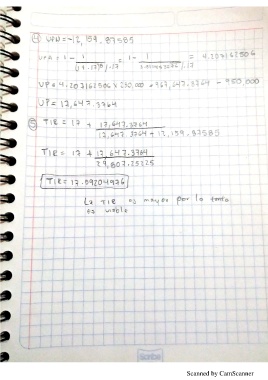 ④ VPN = -12,159.87585
VPA = 1 - 1 / (1+.17)^8 / .17 = 1 - 1 / / .17 = 4.207162506
VP = 4.207162506 x 230,000 = 967,647.3764 - 950,000
VP = 17,647.3764
⑤ TIR = 17 + 17,647.3764 / 17,647.3764 + 12,159.87585
TIR = 17 + 17,647.3764 / 29,807.25225
TIR = 17.59204976
La TIR es mayor por lo tanto
es viable
Scribe
Scanned by CamScanner